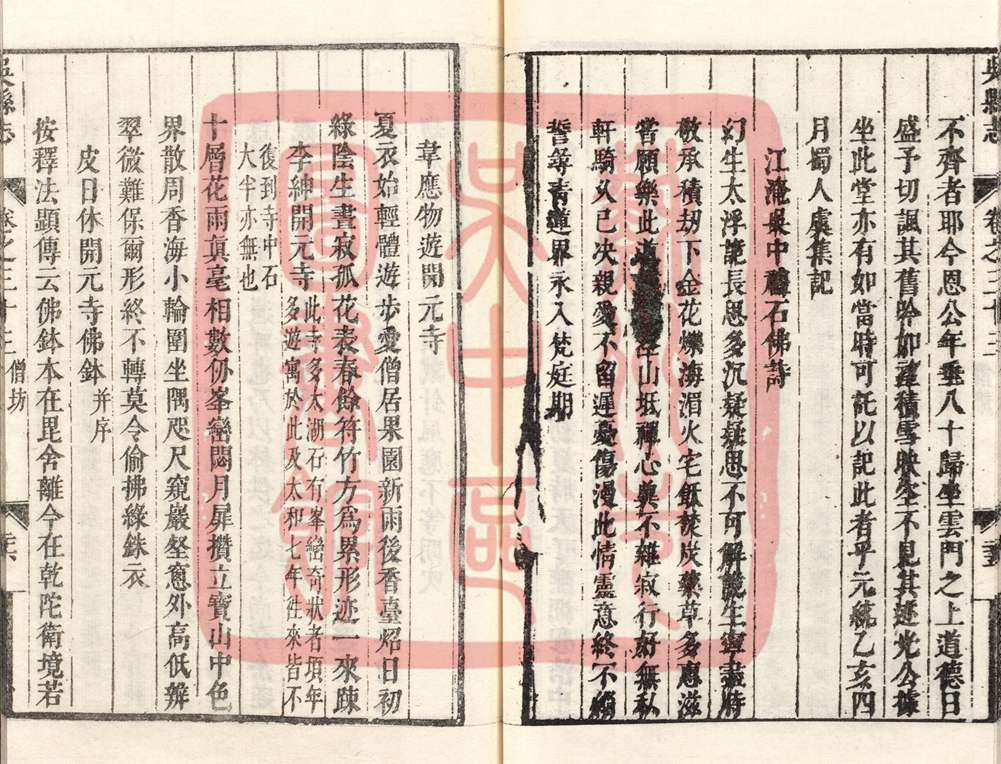 吳縣志
卷之三十三
不齊者耶今恩公年垂八十歸坐雲門之上道德日
盛予切諷其舊吟如
積雪映空不見其迹光公據
坐此堂亦有如當時可託以記此者乎元統乙亥四
月蜀人虞集記
江淹吳中禮石佛詩
幻生太浮詭長思多沉疑疑思不可解詭生寧盡時
敬承積劫下金花爍海湄火宅歛焚炭藥草多惠滋
常願樂此道
山坻禪心
不雜寂行好無私
軒騎久已决親愛不留遲憂傷漫此情靈意終不緇
誓尋青蓮界永入梵庭期
韋應物遊開元寺
夏衣始輕體遊步愛僧居果園新雨後香臺炤日初
綠陰生晝寂孤花表春餘符竹方為累形迹一來踈
李紳開元寺
此寺多太湖石有峯巒奇狀者項年
多遊寓於此及太和七年徃來皆不
復到寺中石
大半亦無也
十層花雨真毫相數仞峯巒閟月扉攢立寶山中色
界散周香海小輪圍坐隅咫尺窺巖壑窻外高低辨
翠微難保爾形終不轉莫令偷拂綠銖衣
皮日休開元寺佛鉢
并序
按釋法顯傳云佛鉢本在毘舍離今在乾陀衛境若
吳縣志
卷之三十三
僧坊